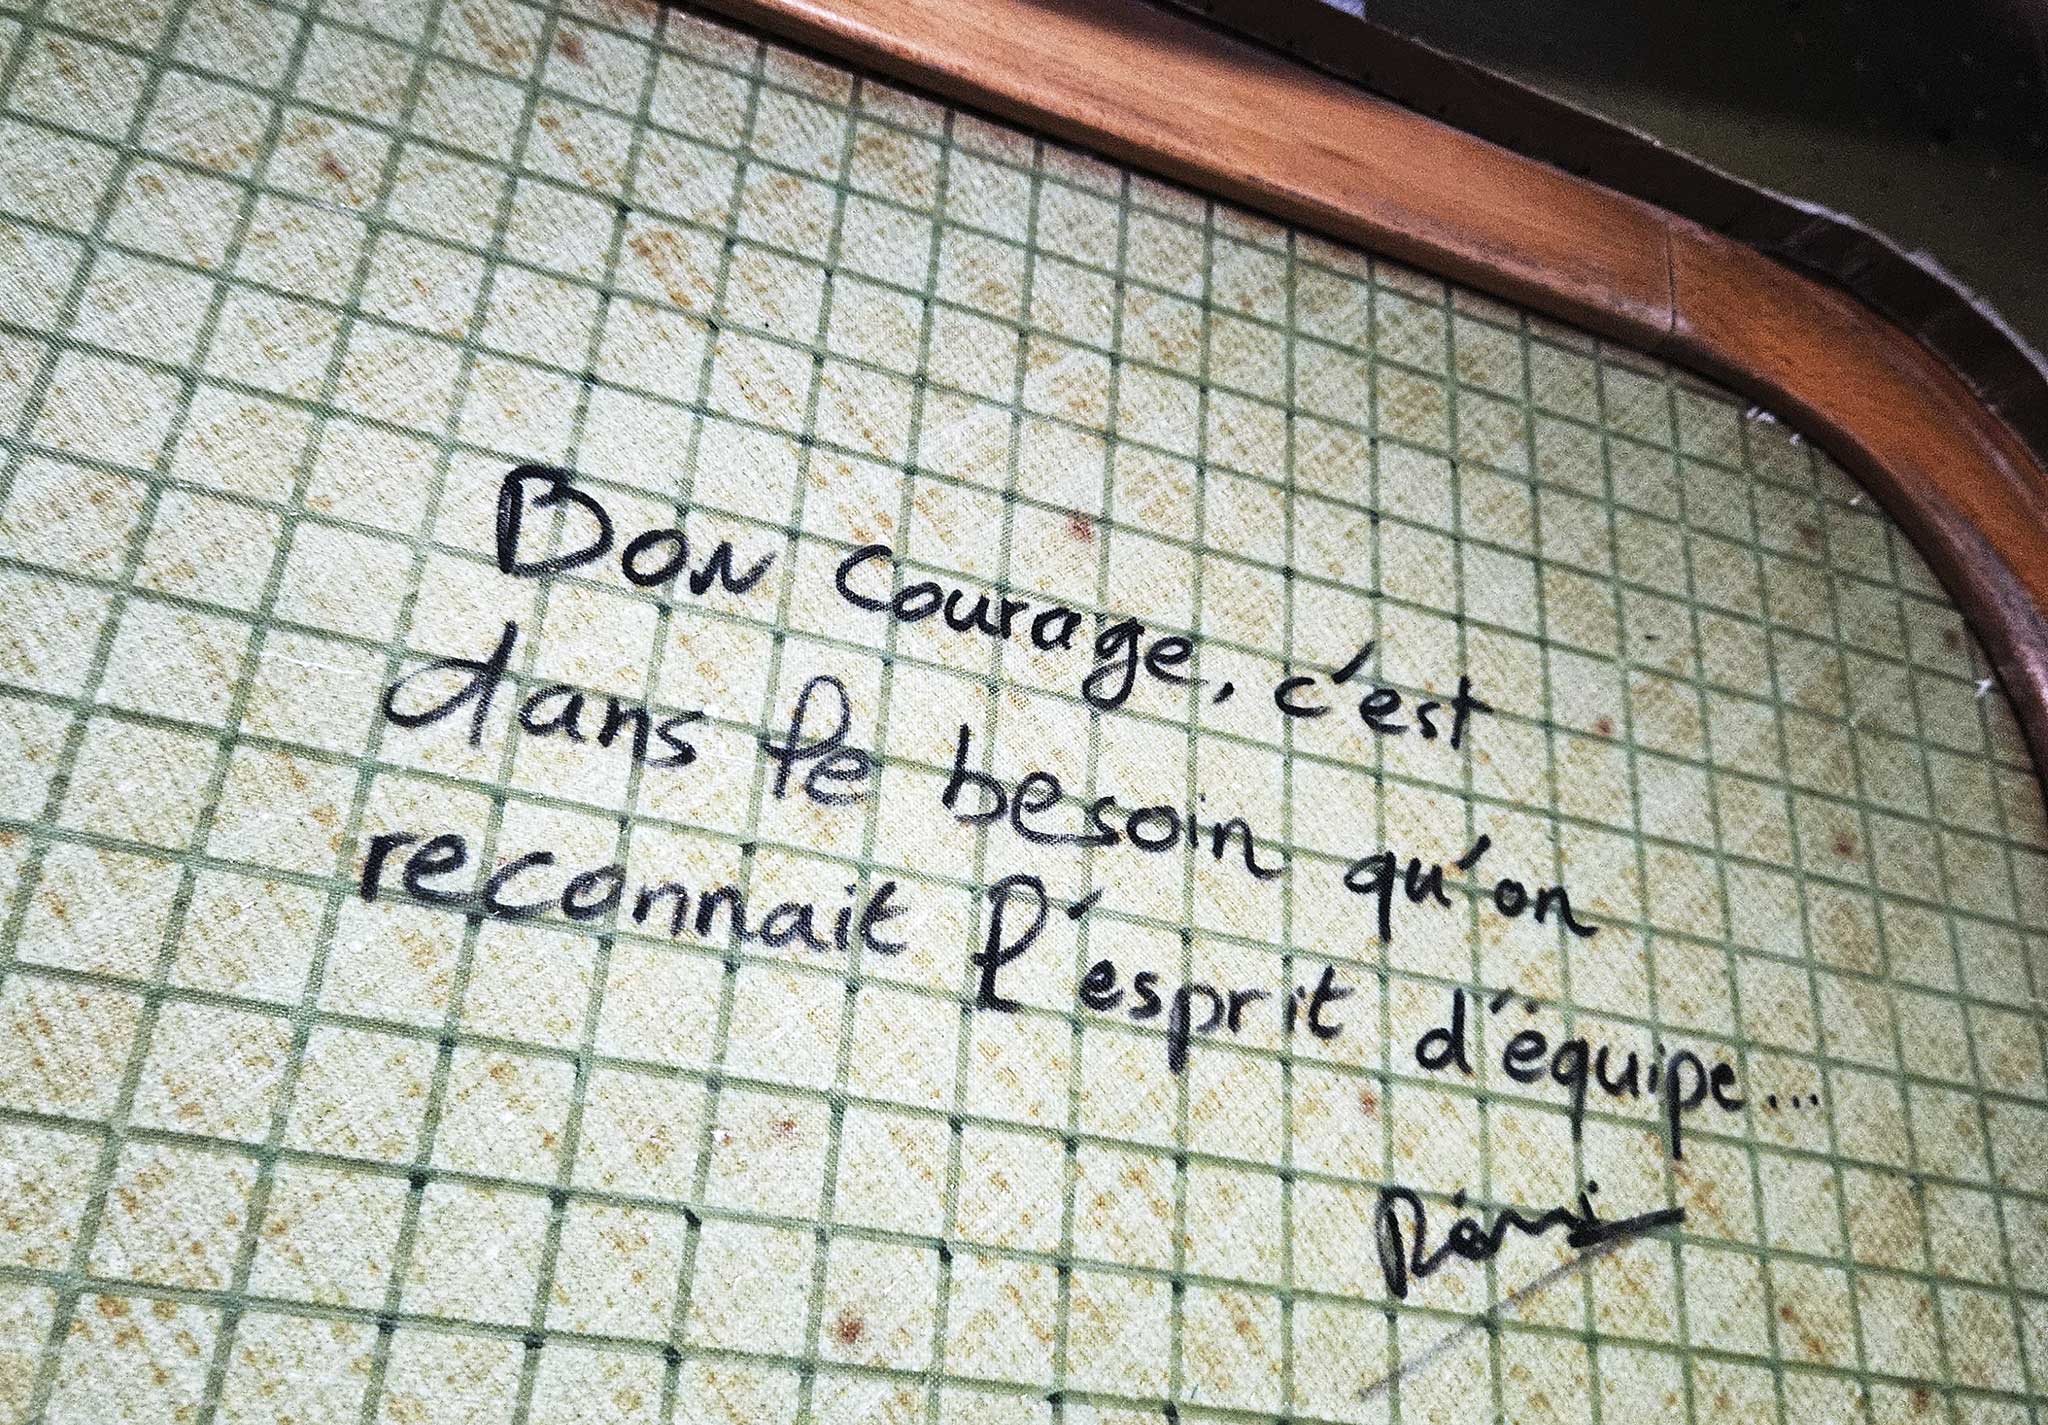 Bon courage, c'est
dans le besoin qu'on
reconnait l'esprit d'équipe...
Rémi